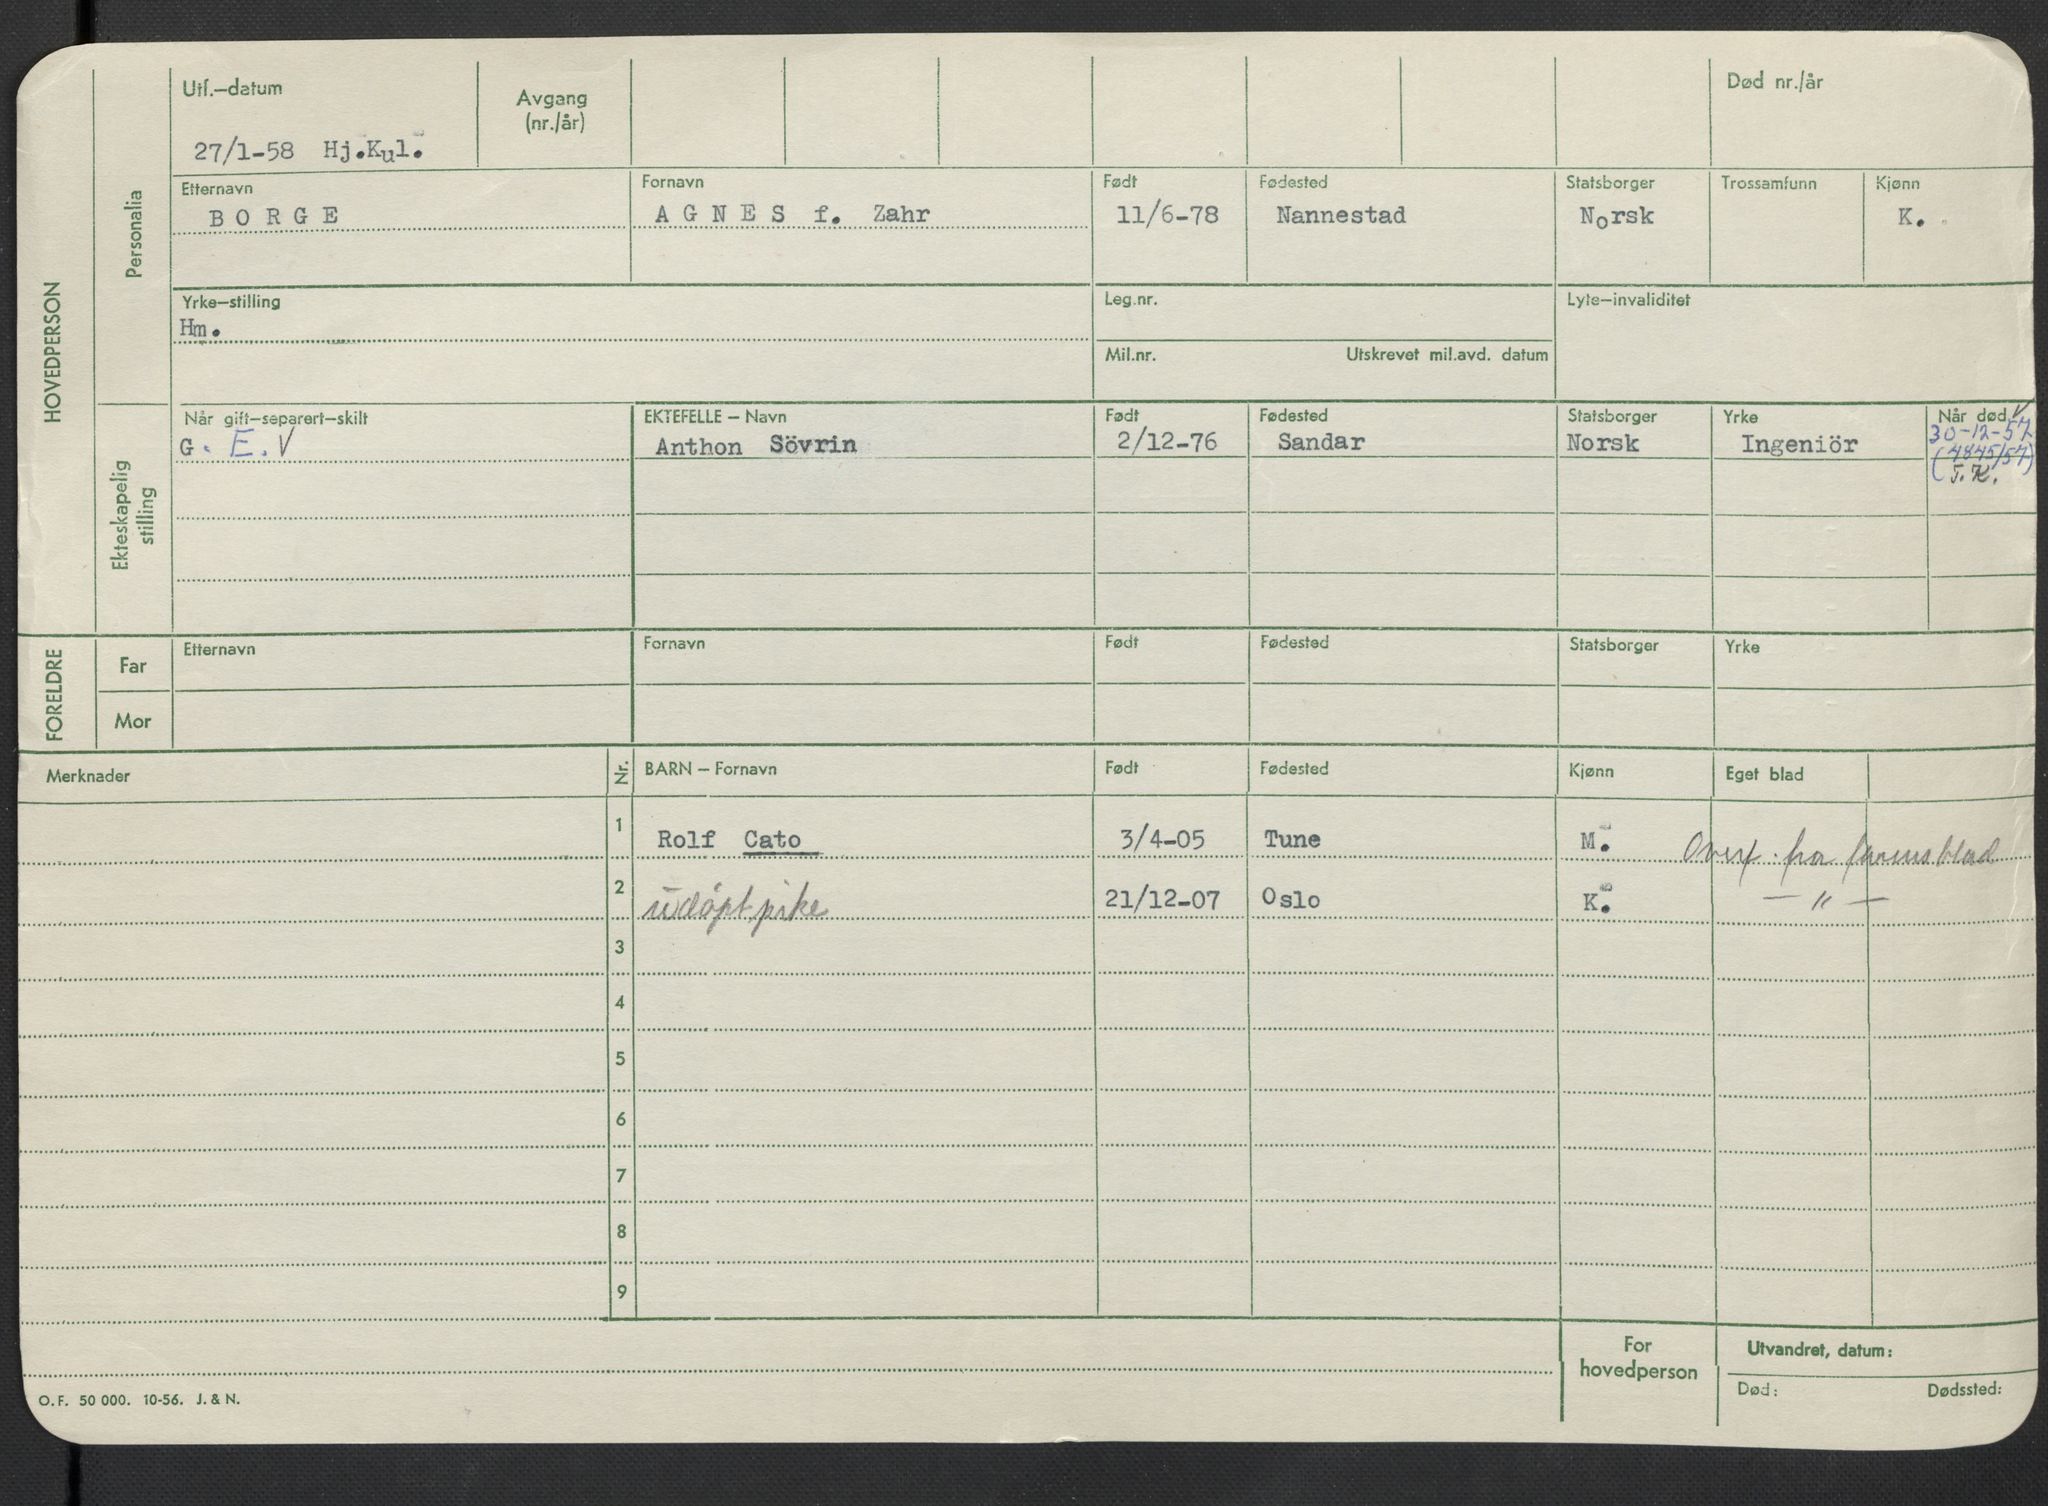 Utf.–datum
Avgang
(nr./år)
Død nr./år
27/1-58 Hj.Kul.
HOVEDPERSON
Personalia
Etternavn
Fornavn
Født
Fødested
Statsborger
Trossamfunn
Kjønn
BORGE
AGNES f. Zahr
11/6-78
Nannestad
Norsk
K.
Yrke–stilling
Leg.nr.
Lyte–invaliditet
Hm.
Mil.nr.
Utskrevet mil.avd. datum
Ekteskapelig
stilling
Når gift–separert–skilt
EKTEFELLE – Navn
Født
Fødested
Statsborger
Yrke
Når død
G. E. V
Anthon Sövrin
2/12-76
Sandar
Norsk
Ingeniör
30-12-57
(4845/57)
T.K.
FORELDRE
Far
Mor
Etternavn
Fornavn
Født
Fødested
Statsborger
Yrke
Merknader
Nr.
BARN – Fornavn
Født
Fødested
Kjønn
Eget blad
1
Rolf Cato
3/4-05
Tune
M.
Overf. fra farens blad
2
udöpt pike
21/12-07
Oslo
K.
— " —
3
4
5
6
7
8
9
For
hovedperson
Utvandret, datum:
Død:
Dødssted:
O.F. 50 000. 10-56. J. & N.